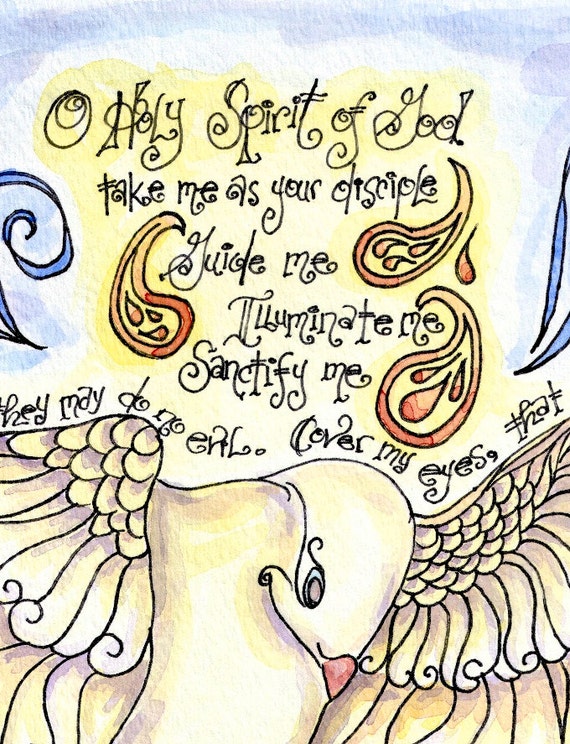 O Holy Spirit of God
take me as your disciple
Guide me
Illuminate me
Sanctify me
they may do no evil. Cover my eyes, that